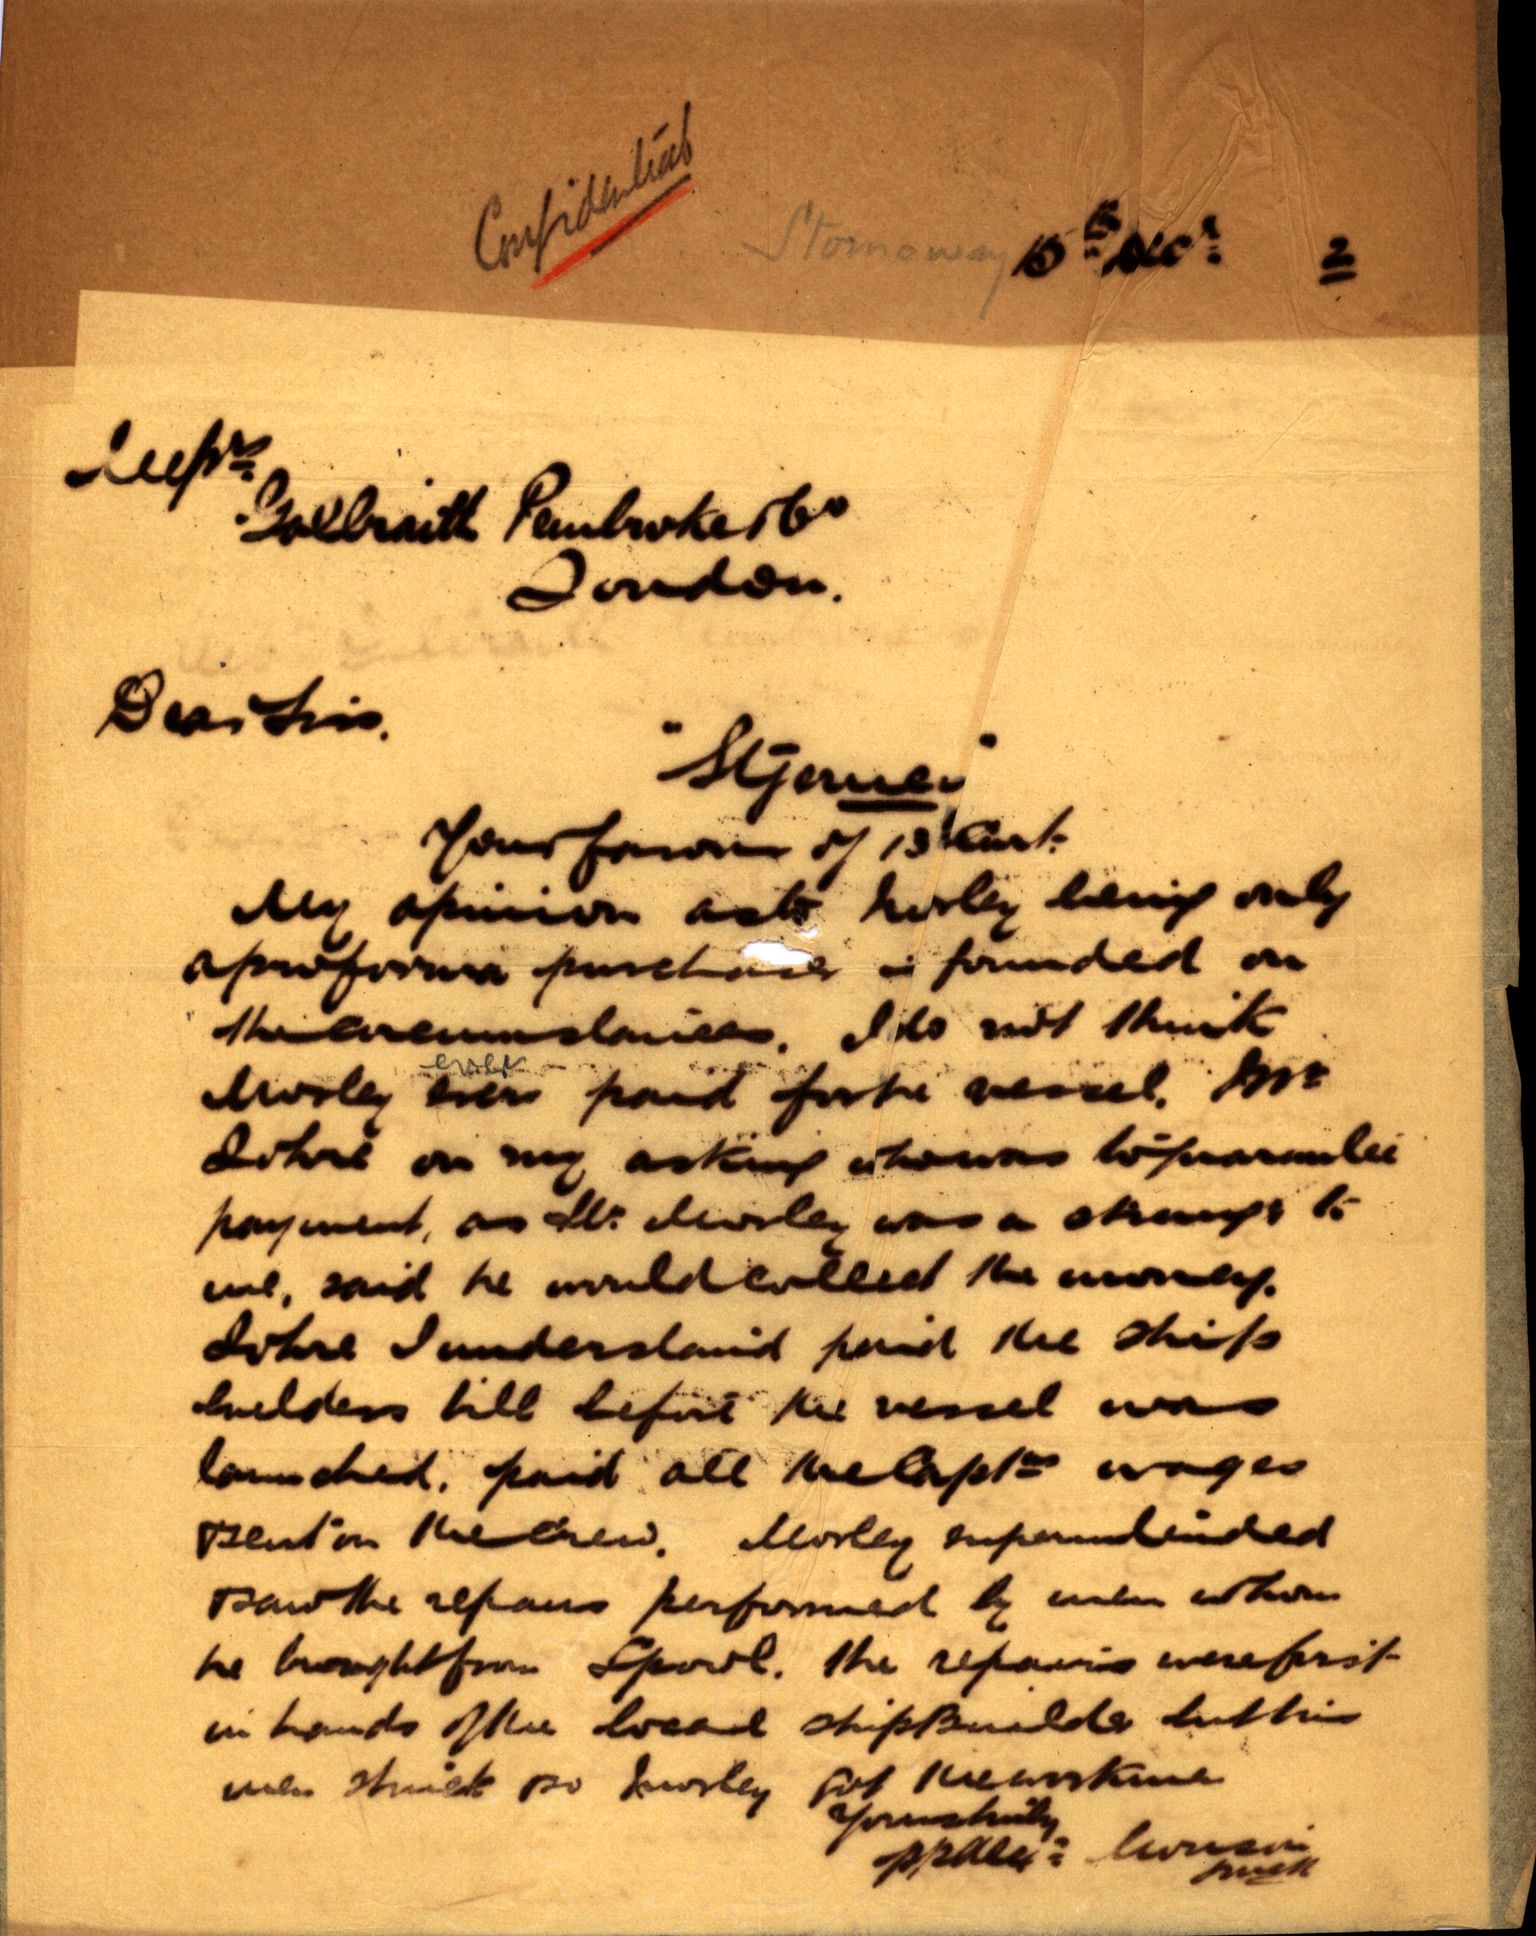 Confidential
Stornoway 15th Decr 2
Messrs
Galbraith Pembroke & Co
London.
Dear Sirs.
"Stjernen"
Your favour of 13th Curt.
My opinion as to Morley being only
a proforma purchaser is founded on
the circumstances. I do not think
ever
Morley ever paid for the vessel. Mr
Lohre on my asking who was to guarantee
payment, as Mr. Morley was a stranger to
me, said he would collect the money.
Lohre I understand paid the ship
builders bill before the vessel was
launched, paid all the Captns wages
& sent on the Crew. Morley superintended
& saw the repairs performed by men whom
he brought from Lpool. The repairs were first
in hands of the local shipBuilder but his
men struck so Morley got the workmen
Yours truly
pr Alexr Morison